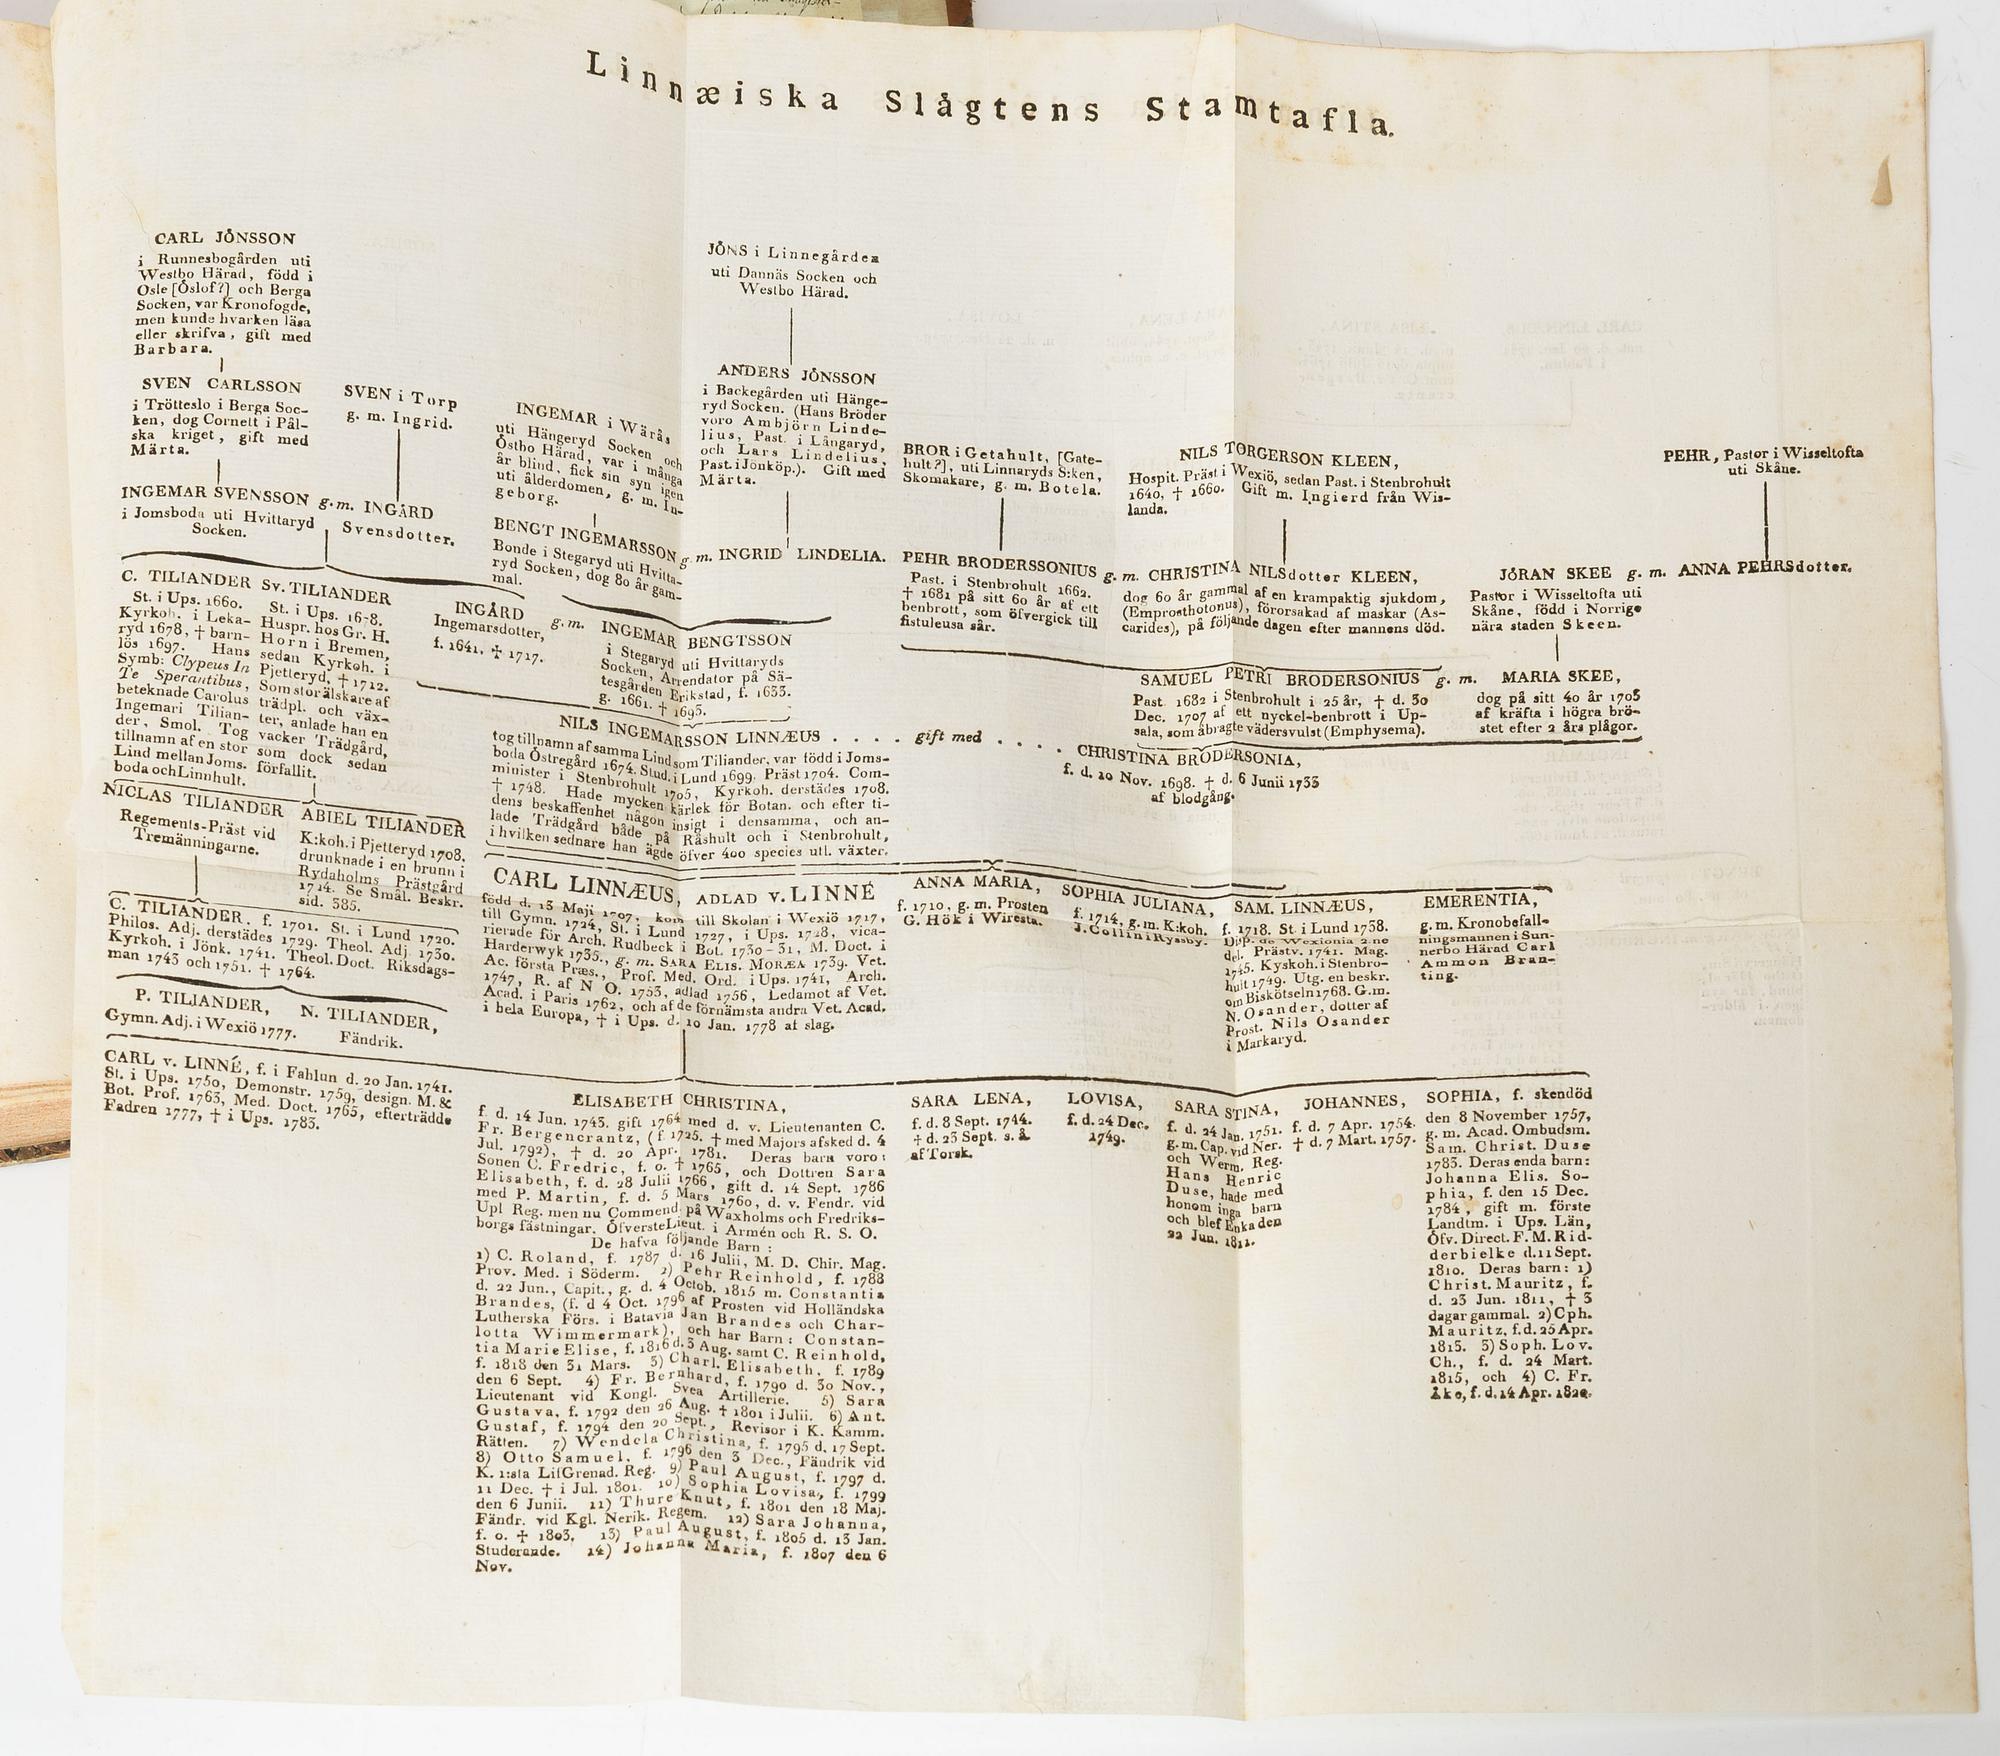 Linnæiska Slågtens Stamtafla.
CARL JÖNSSON
i Runnesbogården uti
Westbo Härad, född i
Osle [Öslof?] och Berga
Socken, var Kronofogde,
men kunde hvarken läsa
eller skrifva, gift med
Barbara.
SVEN CARLSSON
i Trötteslo i Berga Soc-
ken, dog Cornett i Pål-
ska kriget, gift med
Märta.
SVEN i Torp
g. m. Ingrid.
INGEMAR SVENSSON g. m. INGÅRD
i Jomsboda uti Hvittaryd
Socken.
Svensdotter.
INGEMAR i Wärås
uti Hängeryd Socken och
Östbo Härad, var i många
år blind, fick sin syn igen
uti ålderdomen, g. m. In-
geborg.
BENGT INGEMARSSON g. m. INGRID LINDELIA.
Bonde i Stegaryd uti Hvitta-
ryd Socken, dog 80 år gam-
mal.
JÖNS i Linnegården
uti Dannäs Socken och
Westbo Härad.
ANDERS JÖNSSON
i Backegården uti Hänge-
ryd Socken. (Hans Bröder
voro Ambjörn Linde-
lius, Past. i Långaryd,
och Lars Lindelius,
Past. i Jönköp.). Gift med
Märta.
BROR i Getahult, [Gate-
hult?], uti Linnaryds S:ken,
Skomakare, g. m. Botela.
NILS TORGERSON KLEEN,
Hospit. Präst i Wexiö, sedan Past. i Stenbrohult
1640, † 1660. Gift m. Ingierd från Wis-
landa.
PEHR, Pastor i Wisseltofta
uti Skåne.
PEHR BRODERSSONIUS g. m. CHRISTINA NILSdotter KLEEN,
Past. i Stenbrohult 1662.
† 1681 på sitt 60 år af ett
benbrott, som öfvergick till
fistuleusa sår.
dog 60 år gammal af en krampaktig sjukdom,
(Emprosthotonus), förorsakad af maskar (As-
carides), på följande dagen efter mannens död.
JÖRAN SKEE g. m. ANNA PEHRSdotter.
Pastor i Wisseltofta uti
Skåne, född i Norrige
nära staden Skeen.
C. TILIANDER
St. i Ups. 1660.
Kyrkoh. i Leka-
ryd 1678, † barn-
lös 1697. Hans
Symb: Clypeus In
Te Sperantibus,
beteknade Carolus
Ingemari Tilian-
der, Smol. Tog
tillnamn af en stor
Lind mellan Joms-
boda och Linnhult.
Sv. TILIANDER
St. i Ups. 1678.
Huspr. hos Gr. H.
Horn i Bremen,
sedan Kyrkoh. i
Pjetteryd, † 1712.
Som stor älskare af
trädpl. och väx-
ter, anlade han en
vacker Trädgård,
som dock sedan
förfallit.
INGÅRD g. m. INGEMAR BENGTSSON
Ingemarsdotter,
f. 1641, † 1717.
i Stegaryd uti Hvittaryds
Socken, Arrendator på Sä-
tesgården Erikstad, f. 1633.
g. 1661. † 1693.
SAMUEL PETRI BRODERSONIUS g. m. MARIA SKEE,
Past. 1682 i Stenbrohult i 25 år, † d. 30
Dec. 1707 af ett nyckel-benbrott i Up-
sala, som åbragte vädersvulst (Emphysema).
dog på sitt 40 år 1703
af kräfta i högra brö-
stet efter 2 års plågor.
NILS INGEMARSSON LINNÆUS . . . . gift med . . . . CHRISTINA BRODERSONIA,
tog tillnamn af samma Lind som Tiliander, var född i Joms-
boda Östregård 1674. Stud. i Lund 1699. Präst 1704. Com-
minister i Stenbrohult 1705, Kyrkoh. derstädes 1708.
† 1748. Hade mycken kärlek för Botan. och efter ti-
dens beskaffenhet någon insigt i densamma, och an-
lade Trädgård både på Råshult och i Stenbrohult,
i hvilken sednare han ägde öfver 400 species utl. växter.
f. d. 10 Nov. 1698. † d. 6 Junii 1733
af blodgång.
NICLAS TILIANDER
Regements-Präst vid
Tremänningarne.
ABIEL TILIANDER
K:koh. i Pjetteryd 1708.
drunknade i en brunn i
Rydaholms Prästgård
1724. Se Smål. Beskr.
sid. 385.
C. TILIANDER. f. 1701. St. i Lund 1720.
Philos. Adj. derstädes 1729. Theol. Adj. 1730.
Kyrkoh. i Jönk. 1741. Theol. Doct. Riksdags-
man 1743 och 1751. † 1764.
P. TILIANDER,
Gymn. Adj. i Wexiö 1777.
N. TILIANDER,
Fändrik.
CARL LINNÆUS, ADLAD v. LINNÉ
född d. 13 Maji 1707, kom till Skolan i Wexiö 1717,
till Gymn. 1724, St. i Lund 1727, i Ups. 1728, vica-
rierade för Arch. Rudbeck i Bot. 1730-31, M. Doct. i
Harderwyk 1735., g. m. SARA ELIS. MORÆA 1739. Vet.
Ac. första Præs., Prof. Med. Ord. i Ups. 1741, Arch.
1747, R. af N O. 1753, adlad 1756, Ledamot af Vet.
Acad. i Paris 1762, och af de förnämsta andra Vet. Acad.
i hela Europa, † i Ups. d. 10 Jan. 1778 af slag.
ANNA MARIA,
f. 1710, g. m. Prosten
G. Hök i Wiresta.
SOPHIA JULIANA,
f. 1714, g. m. K:koh.
J. Collin i Ryssby.
SAM. LINNÆUS,
f. 1718. St. i Lund 1738.
Disp. de Wexionia 2:ne
del. Prästv. 1741. Mag.
1745. Kyskoh. i Stenbro-
hult 1749. Utg. en beskr.
om Biskötseln 1768. G. m.
N. Osander, dotter af
Prost. Nils Osander
i Markaryd.
EMERENTIA,
g. m. Kronobefall-
ningsmannen i Sun-
nerbo Härad Carl
Ammon Bran-
ting.
CARL v. LINNÉ, f. i Fahlun d. 20 Jan. 1741.
St. i Ups. 1750, Demonstr. 1759, design. M. &
Bot. Prof. 1763, Med. Doct. 1765, efterträdde
Fadren 1777, † i Ups. 1783.
ELISABETH CHRISTINA,
f. d. 14 Jun. 1743. gift 1764 med d. v. Lieutenanten C.
Fr. Bergencrantz, (f. 1725. † med Majors afsked d. 4
Jul. 1792), † d. 20 Apr. 1781. Deras barn voro:
Sonen C. Fredric, f. o. † 1765, och Dottren Sara
Elisabeth, f. d. 28 Julii 1766, gift d. 14 Sept. 1786
med P. Martin, f. d. 5 Mars 1760, d. v. Fendr. vid
Upl Reg. men nu Commend. på Waxholms och Fredriks-
borgs fästningar, ÖfversteLieut. i Armén och R. S. O.
De hafva följande Barn:
1) C. Roland, f. 1787 d. 16 Julii, M. D. Chir. Mag.
Prov. Med. i Söderm. 2) Pehr Reinhold, f. 1788
d. 22 Jun., Capit., g. d. 4 Octob. 1815 m. Constantia
Brandes, (f. d 4 Oct. 1796 af Prosten vid Holländska
Lutherska Förs. i Batavia Jan Brandes och Char-
lotta Wimmermark), och har Barn: Constan-
tia Marie Elise, f. 1816 d. 3 Aug. samt C. Reinhold,
f. 1818 den 31 Mars. 3) Charl. Elisabeth, f. 1789
den 6 Sept. 4) Fr. Bernhard, f. 1790 d. 30 Nov.,
Lieutenant vid Kongl. Svea Artillerie. 5) Sara
Gustava, f. 1792 den 26 Aug. † 1801 i Julii. 6) Ant.
Gustaf, f. 1794 den 20 Sept., Revisor i K. Kamm.
Rätten. 7) Wendela Christina, f. 1795 d. 17 Sept.
8) Otto Samuel, f. 1796 den 3 Dec., Fändrik vid
K. 1:sta LifGrenad. Reg. 9) Paul August, f. 1797 d.
11 Dec. † i Jul. 1801. 10) Sophia Lovisa, f. 1799
den 6 Junii. 11) Thure Knut, f. 1801 den 18 Maj.
Fändr. vid Kgl. Nerik. Regem. 12) Sara Johanna,
f. o. † 1803. 13) Paul August, f. 1805 d. 13 Jan.
Studerande. 14) Johanna Maria, f. 1807 den 6
Nov.
SARA LENA,
f. d. 8 Sept. 1744.
† d. 23 Sept. s. å.
af Torsk.
LOVISA,
f. d. 24 Dec.
1749.
SARA STINA,
f. d. 24 Jan. 1751.
g. m. Cap. vid Ner.
och Werm. Reg.
Hans Henric
Duse, hade med
honom inga barn
och blef Enka den
22 Jun. 1811.
JOHANNES,
f. d. 7 Apr. 1754.
† d. 7 Mart. 1757.
SOPHIA, f. skendöd
den 8 November 1757,
g. m. Acad. Ombudsm.
Sam. Christ. Duse
1783. Deras enda barn:
Johanna Elis. So-
phia, f. den 15 Dec.
1784, gift m. förste
Landtm. i Ups. Län,
Öfv. Direct. F. M. Rid-
derbielke d. 11 Sept.
1810. Deras barn: 1)
Christ. Mauritz, f.
d. 23 Jun. 1811, † 3
dagar gammal. 2) Cph.
Mauritz, f. d. 25 Apr.
1813. 3) Soph. Lov.
Ch., f. d. 24 Mart.
1815, och 4) C. Fr.
Åke, f. d. 14 Apr. 1820.